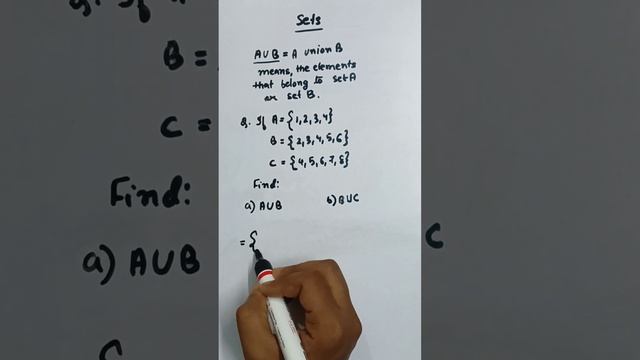 Sets
A∪B = A union B
means, the elements
that belong to set A
or set B.
Q. If A = {1,2,3,4}
B = {2,3,4,5,6}
C = {4,5,6,7,8}
Find:
a) A∪B b) B∪C
= {
B =
C =
Find:
a) A∪B
C